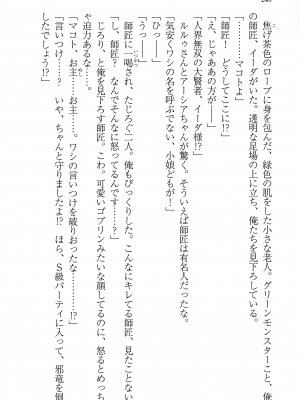 焦げ茶色のローブに身を包んだ、緑色の肌をした小さな老人。グリーンモンスターこと、俺
の師匠、イーダがいた。透明な足場の上に立ち、俺たちを見下ろしている。
「……マコトよ」
「師匠！ どうしてここに!?」
「え、じゃああの方が――」
「人界無双の大賢者、イーダ様!?」
ルルゥさんとアーシアちゃんが驚く。そういえば師匠は有名人だったな。
「気安くワシの名を呼ぶでない、小娘どもが！」
「ひっ――」
「うっ――」
師匠に一喝され、たじろぐ二人。俺もびっくりした。こんなにキレてる師匠、見たことない。
「し、師匠？ なんでそんなに怒ってるんです……？」
じろり、と俺を見下ろす師匠。こわっ。可愛いゴブリンみたいな顔してるのに、怒るとめっち
ゃ迫力あるな……。
「マコト、お主……お主……。ワシの言いつけを破りおったな……!?」
「言いつけ……？ いや、ちゃんと守りましたよ!? ほら、Ｓ級パーティに入って、邪竜を倒
したでしょう!?」